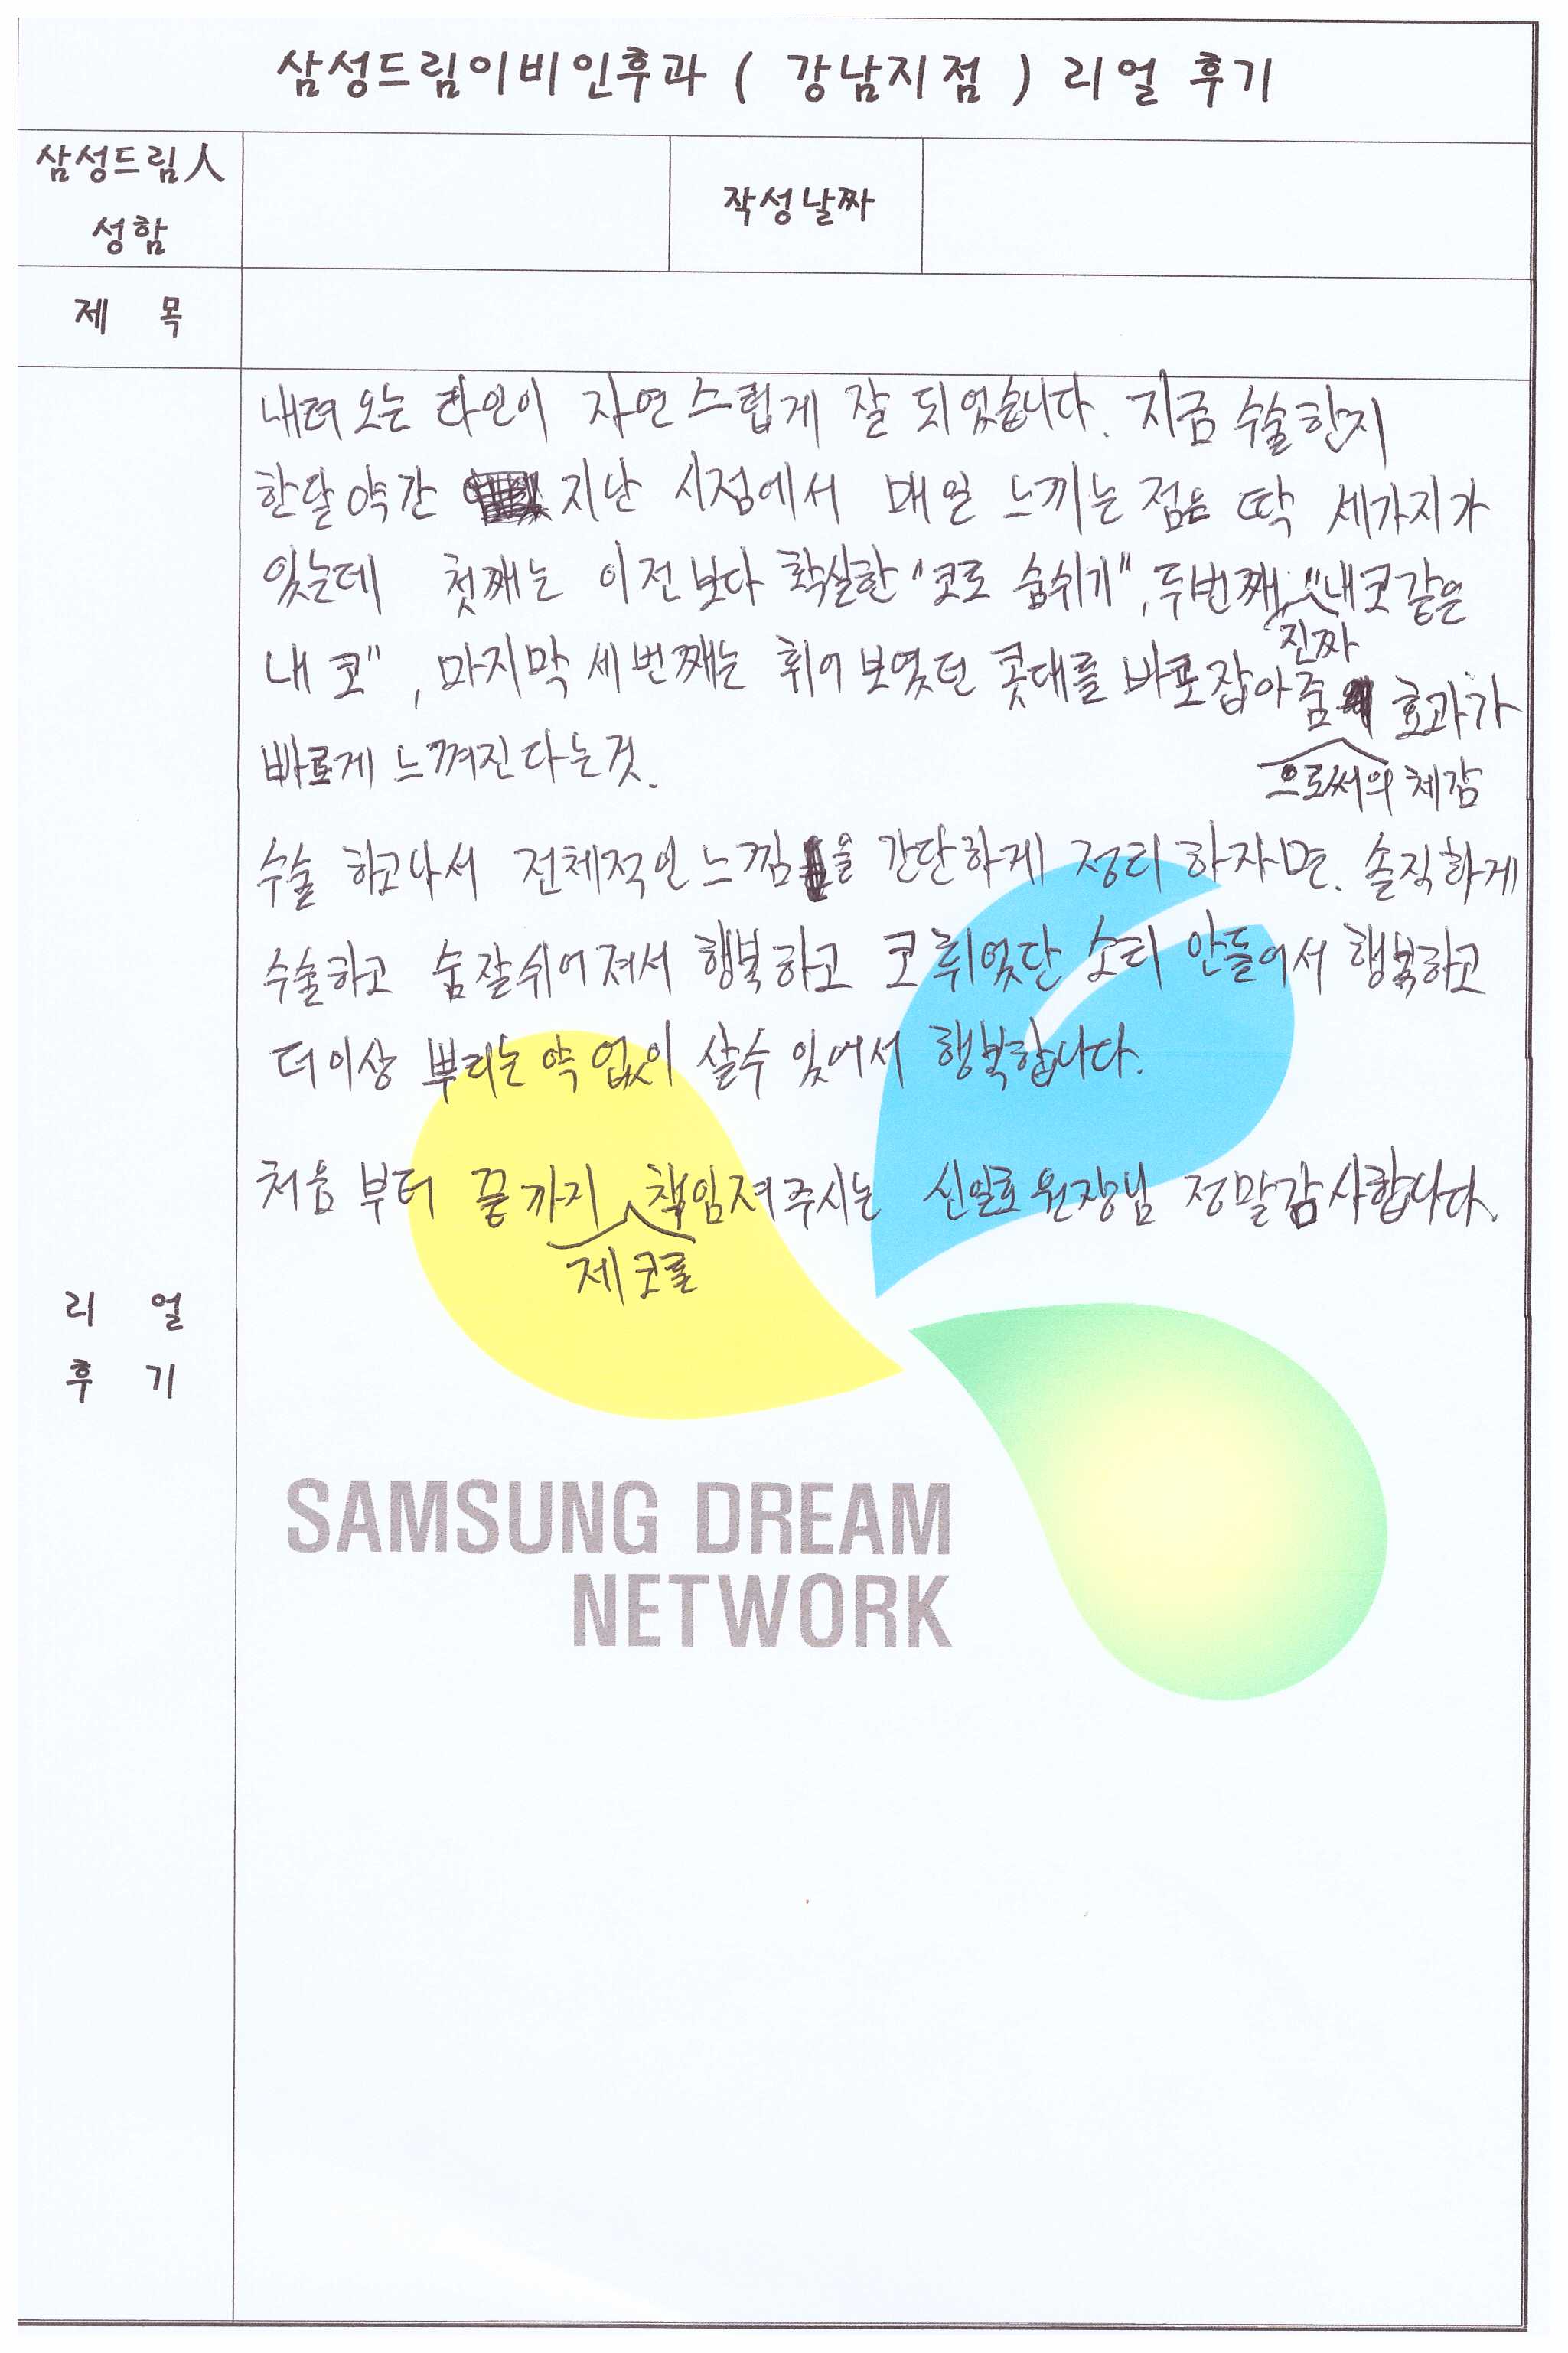 삼성드림이비인후과 ( 강남지점 ) 리얼 후기
삼성드림人
성함
작성날짜
제 목
내려오는 라인이 자연스럽게 잘 되었습니다. 지금 수술한지
한달 약간 지난 시점에서 매일 느끼는 점은 딱 세가지가
있는데 첫째는 이전보다 확실한 "코로 숨쉬기", 두번째, "내코같은
진짜
내 코", 마지막 세번째는 휘어보였던 콧대를 바로잡아줌 효과가
으로써의 체감
빠르게 느껴진다는것.
수술 하고나서 전체적인 느낌을 간단하게 정리하자면. 솔직하게
수술하고 숨잘쉬어져서 행복하고 코 휘었단 소리 안들어서 행복하고
더이상 뿌리는 약 없이 살수 있어서 행복합니다.
처음부터 끝까지 책임져주시는 신일호 원장님 정말감사합니다.
제 코를
리 얼
후 기
SAMSUNG DREAM
NETWORK